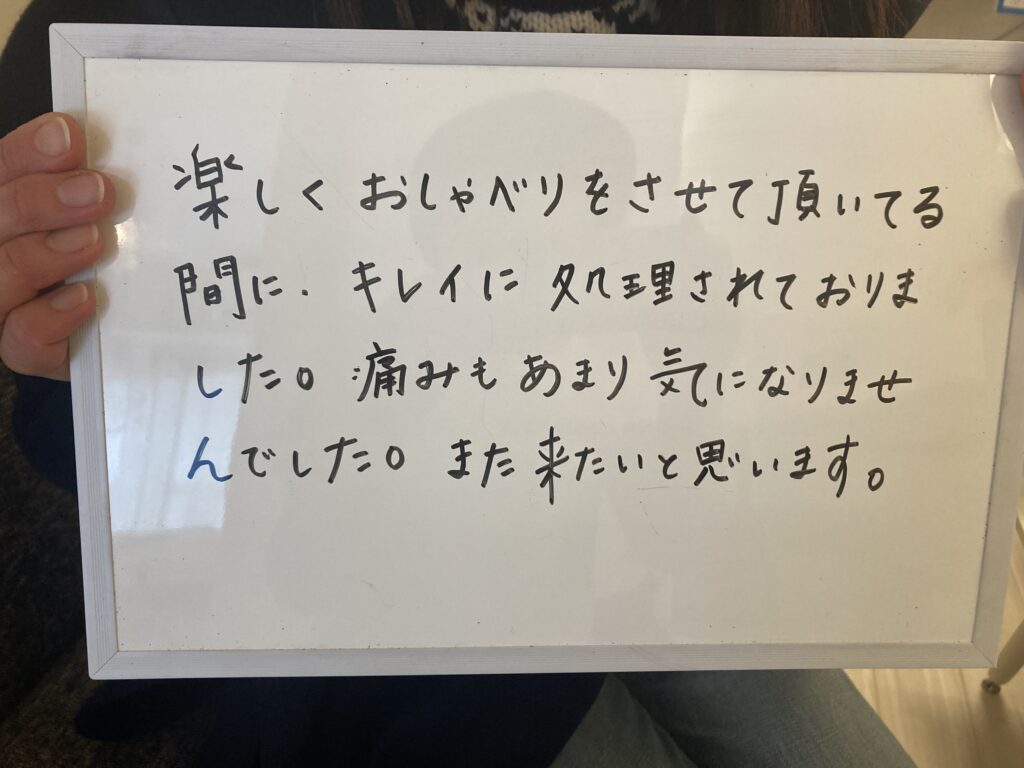 楽しくおしゃべりをさせて頂いてる
間に、キレイに処理されておりま
した。痛みもあまり気になりませ
んでした。また来たいと思います。